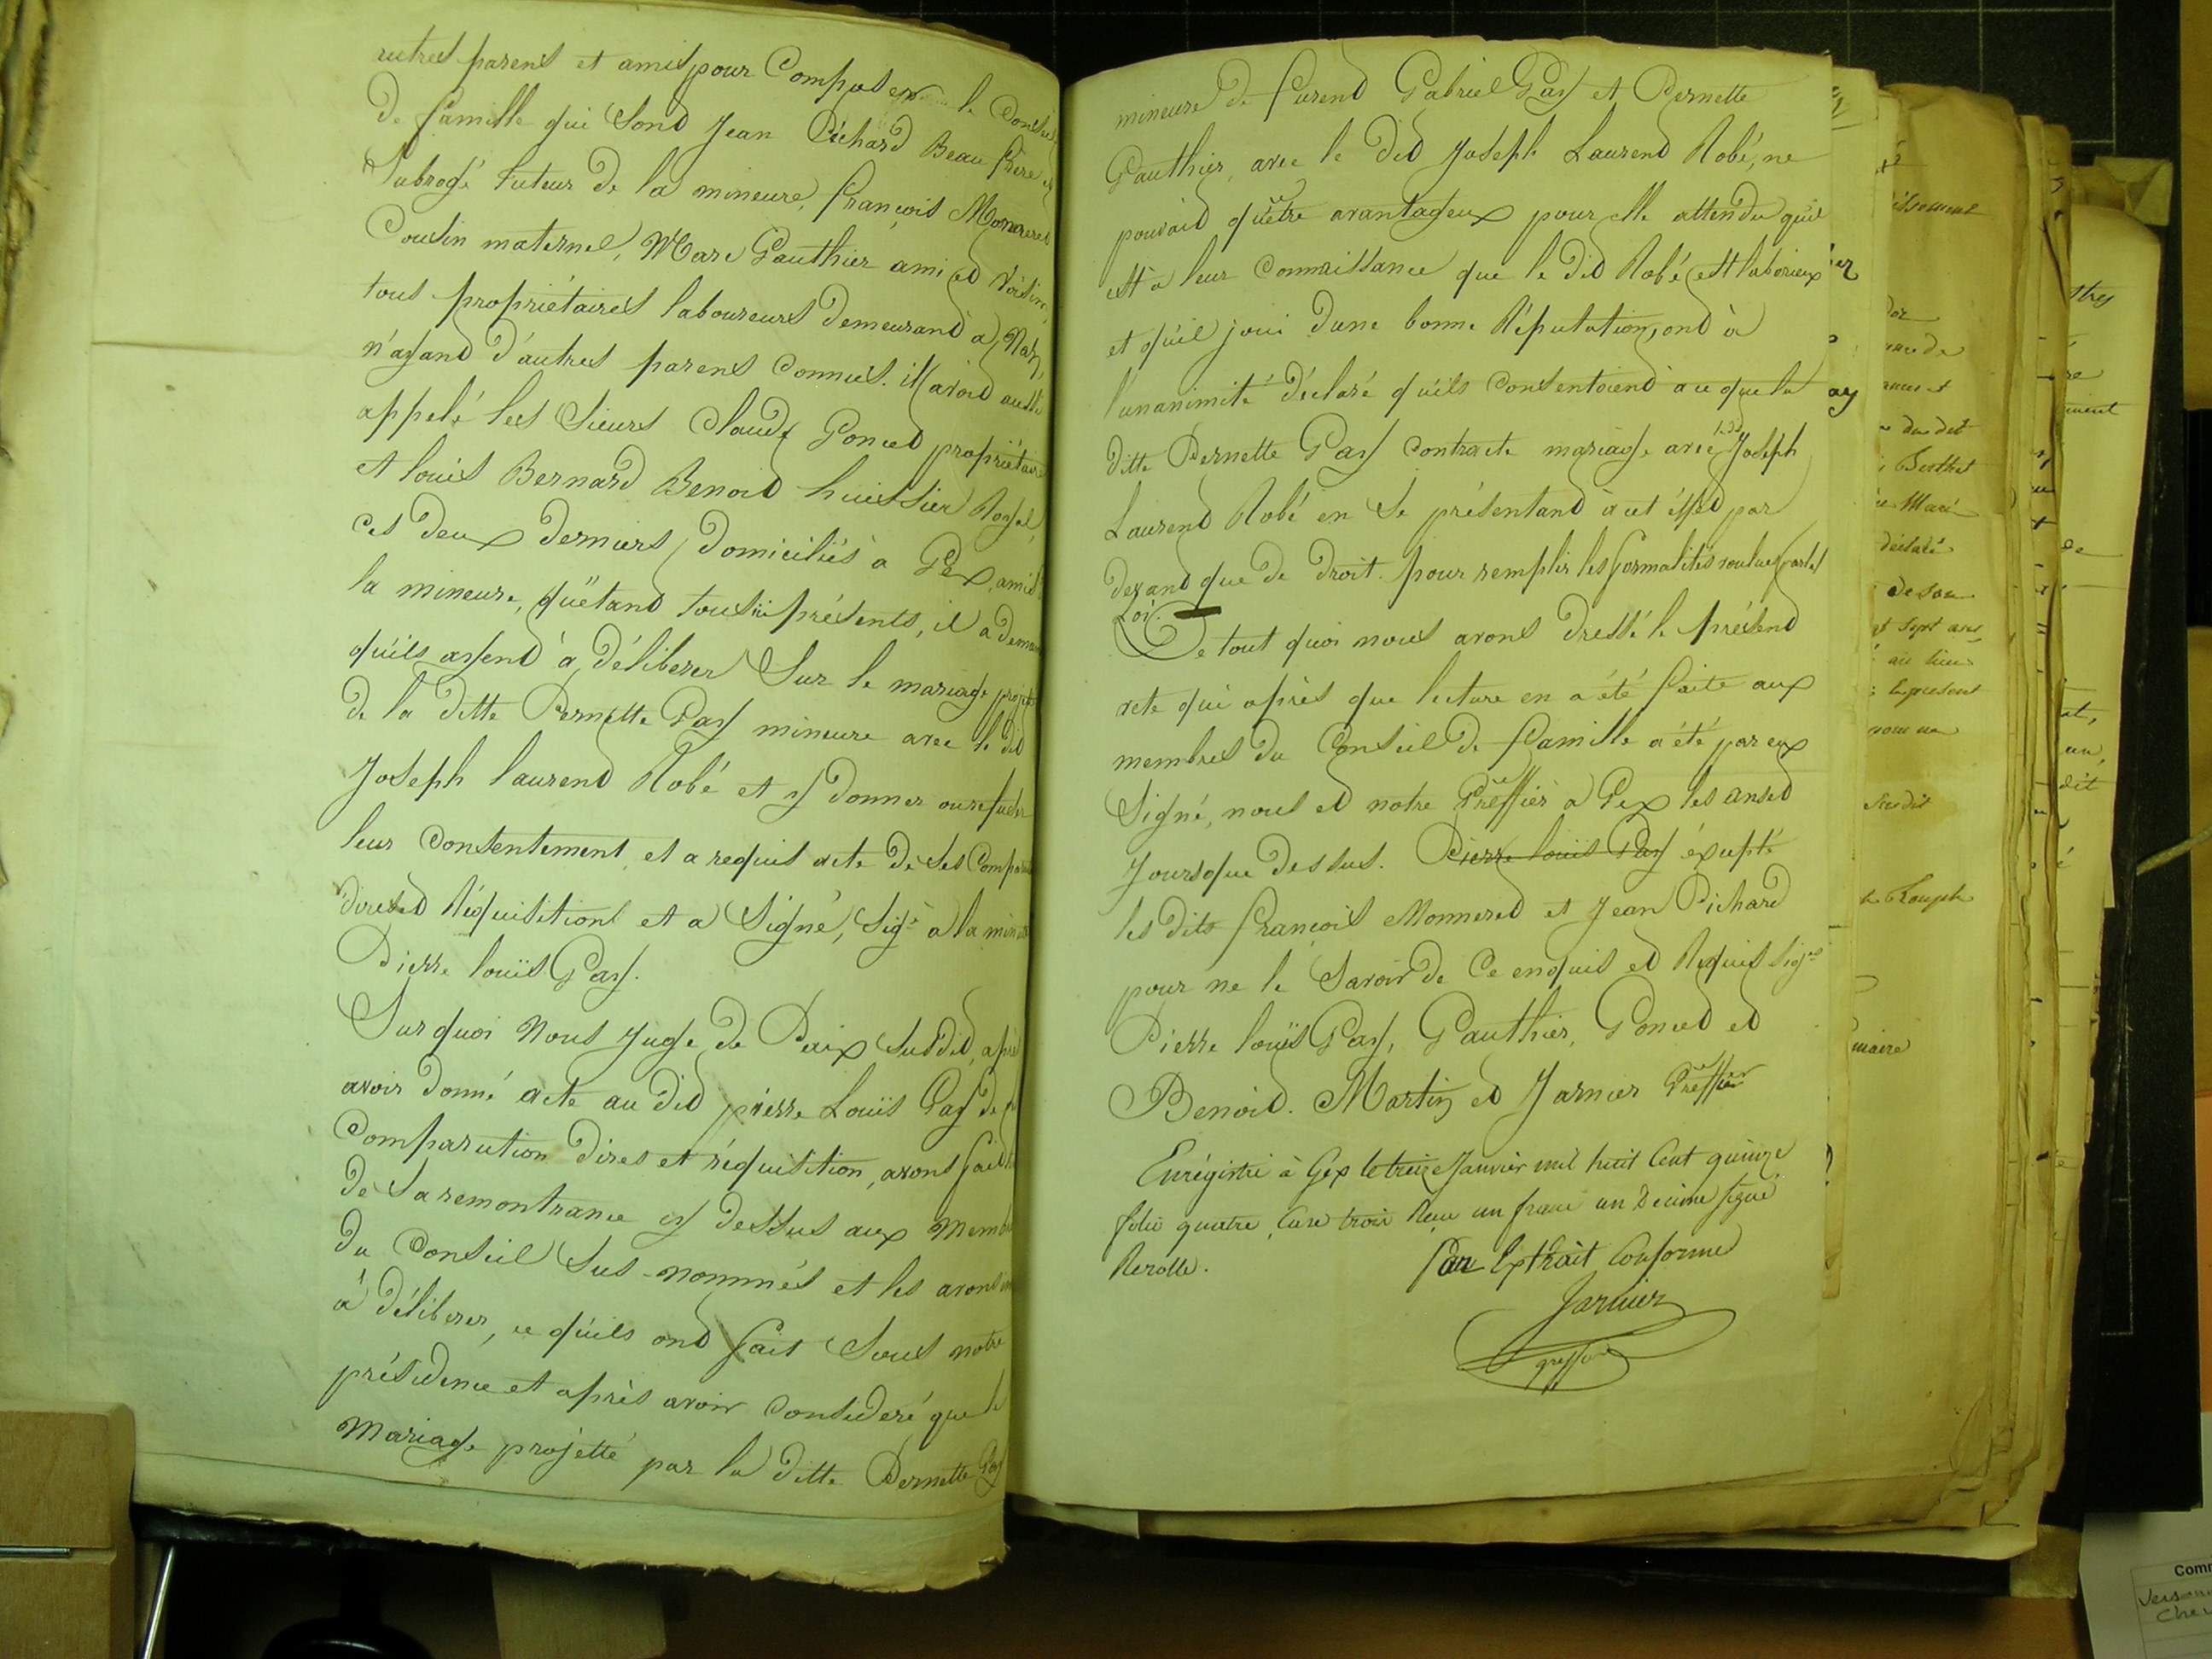 autres parens et amis pour Composer le Conseil
De famille qui sont Jean Pichard Beau frère et
Subrogé tuteur De la mineure, françois Monneret
Cousin maternel, Marc Gauthier ami et Voisin,
tous propriétaires laboureurs Demeurant à
n'ayant D'autres parens Connus. il avoit aussi
appelé les Sieurs Claude Poncet propriétaire
et louis Bernard Benoit huissier Royal,
ces Deux Derniers Domiciliés à Gex, amis
la mineure, qu'étant tous ici présents, il a
qu'ils ayent à Déliberer Sur le mariage projetté
De la Ditte Pernette Gay mineure avec le Dit
Joseph laurent Robé et y Donner ou refuser
leur Consentement et a requis acte De ses
dires et Réquisitions et a Signé, Sigé à la minute
Pierre louis Gay.
Sur quoi Nous Juge De Paix Susdit, après
avoir Donné acte au Dit pierre Louis Gay De
Comparution Dires et réquisition, avons fait
De Sa remontrance cy Dessus aux
Du Conseil Sus-nommés et les avons
à Déliberer, ce qu'ils ont fait Sous notre
présidence et après avoir Consideré que le
Mariage projetté par la Ditte Pernette Gay
mineure De furent Gabriel Gay et Pernette
Gauthier, avec le Dit Joseph Laurent Robé, ne
pouvait qu'être avantageux pour elle attendu qu'il
est à leur Connaissance que le Dit Robé est laborieux
et qu'il joui D'une bonne Réputation, ont à
l'unanimité Déclaré qu'ils Consentoient à ce que la
Ditte Pernette Gay Contracte mariage avec ledit Joseph
Laurent Robé en Se présentant à cet effet par
devant que De Droit pour remplir les formalités voulues par les
Loi.
De tout quoi nous avons Dressé le présent
acte qui après que lecture en a été faite aux
membres Du Conseil De famille a été par eux
Signé, nous et notre Greffier à Gex les an et
Jours que Dessus. Pierre louis Gay éxcepté
les Dits françois Monneret et Jean Pichard
pour ne le Savoir De Ce enquis et Requis Sigés
Pierre louis Gay, Gauthier, Poncet et
Benoit. Martin et Jarnier Greffier
Enrégistré à Gex le treize Janvier mil huit Cent quinze
folio quatre, Case trois Reçu un franc un Decime signé
Rerolle.
Par Extrait Conforme
Jarnier
greffier
issement
Berthet
Marie
déclaré
de son
sept ans
au lieu
le présent
susdit
maire
Com